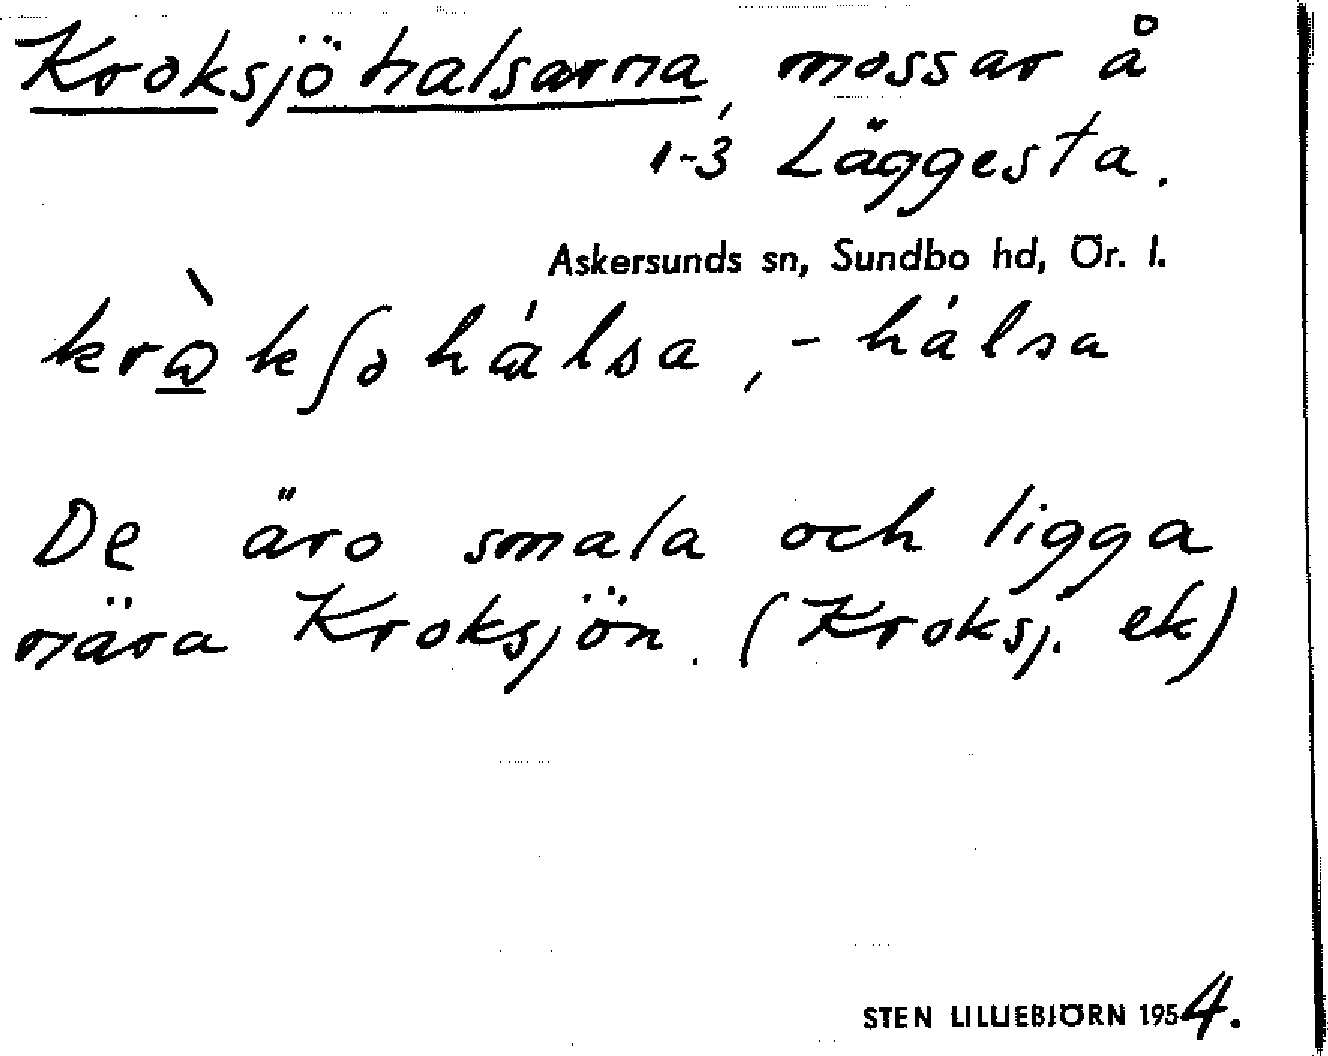 Kroksjöhalsarna, mossar å
1-3 Läggesta.
Askersunds sn, Sundbo hd, Ör. l.
De äro smala och ligga
nära Kroksjön. (Kroksj. ek)
STEN LILLIEBJÖRN 1954.